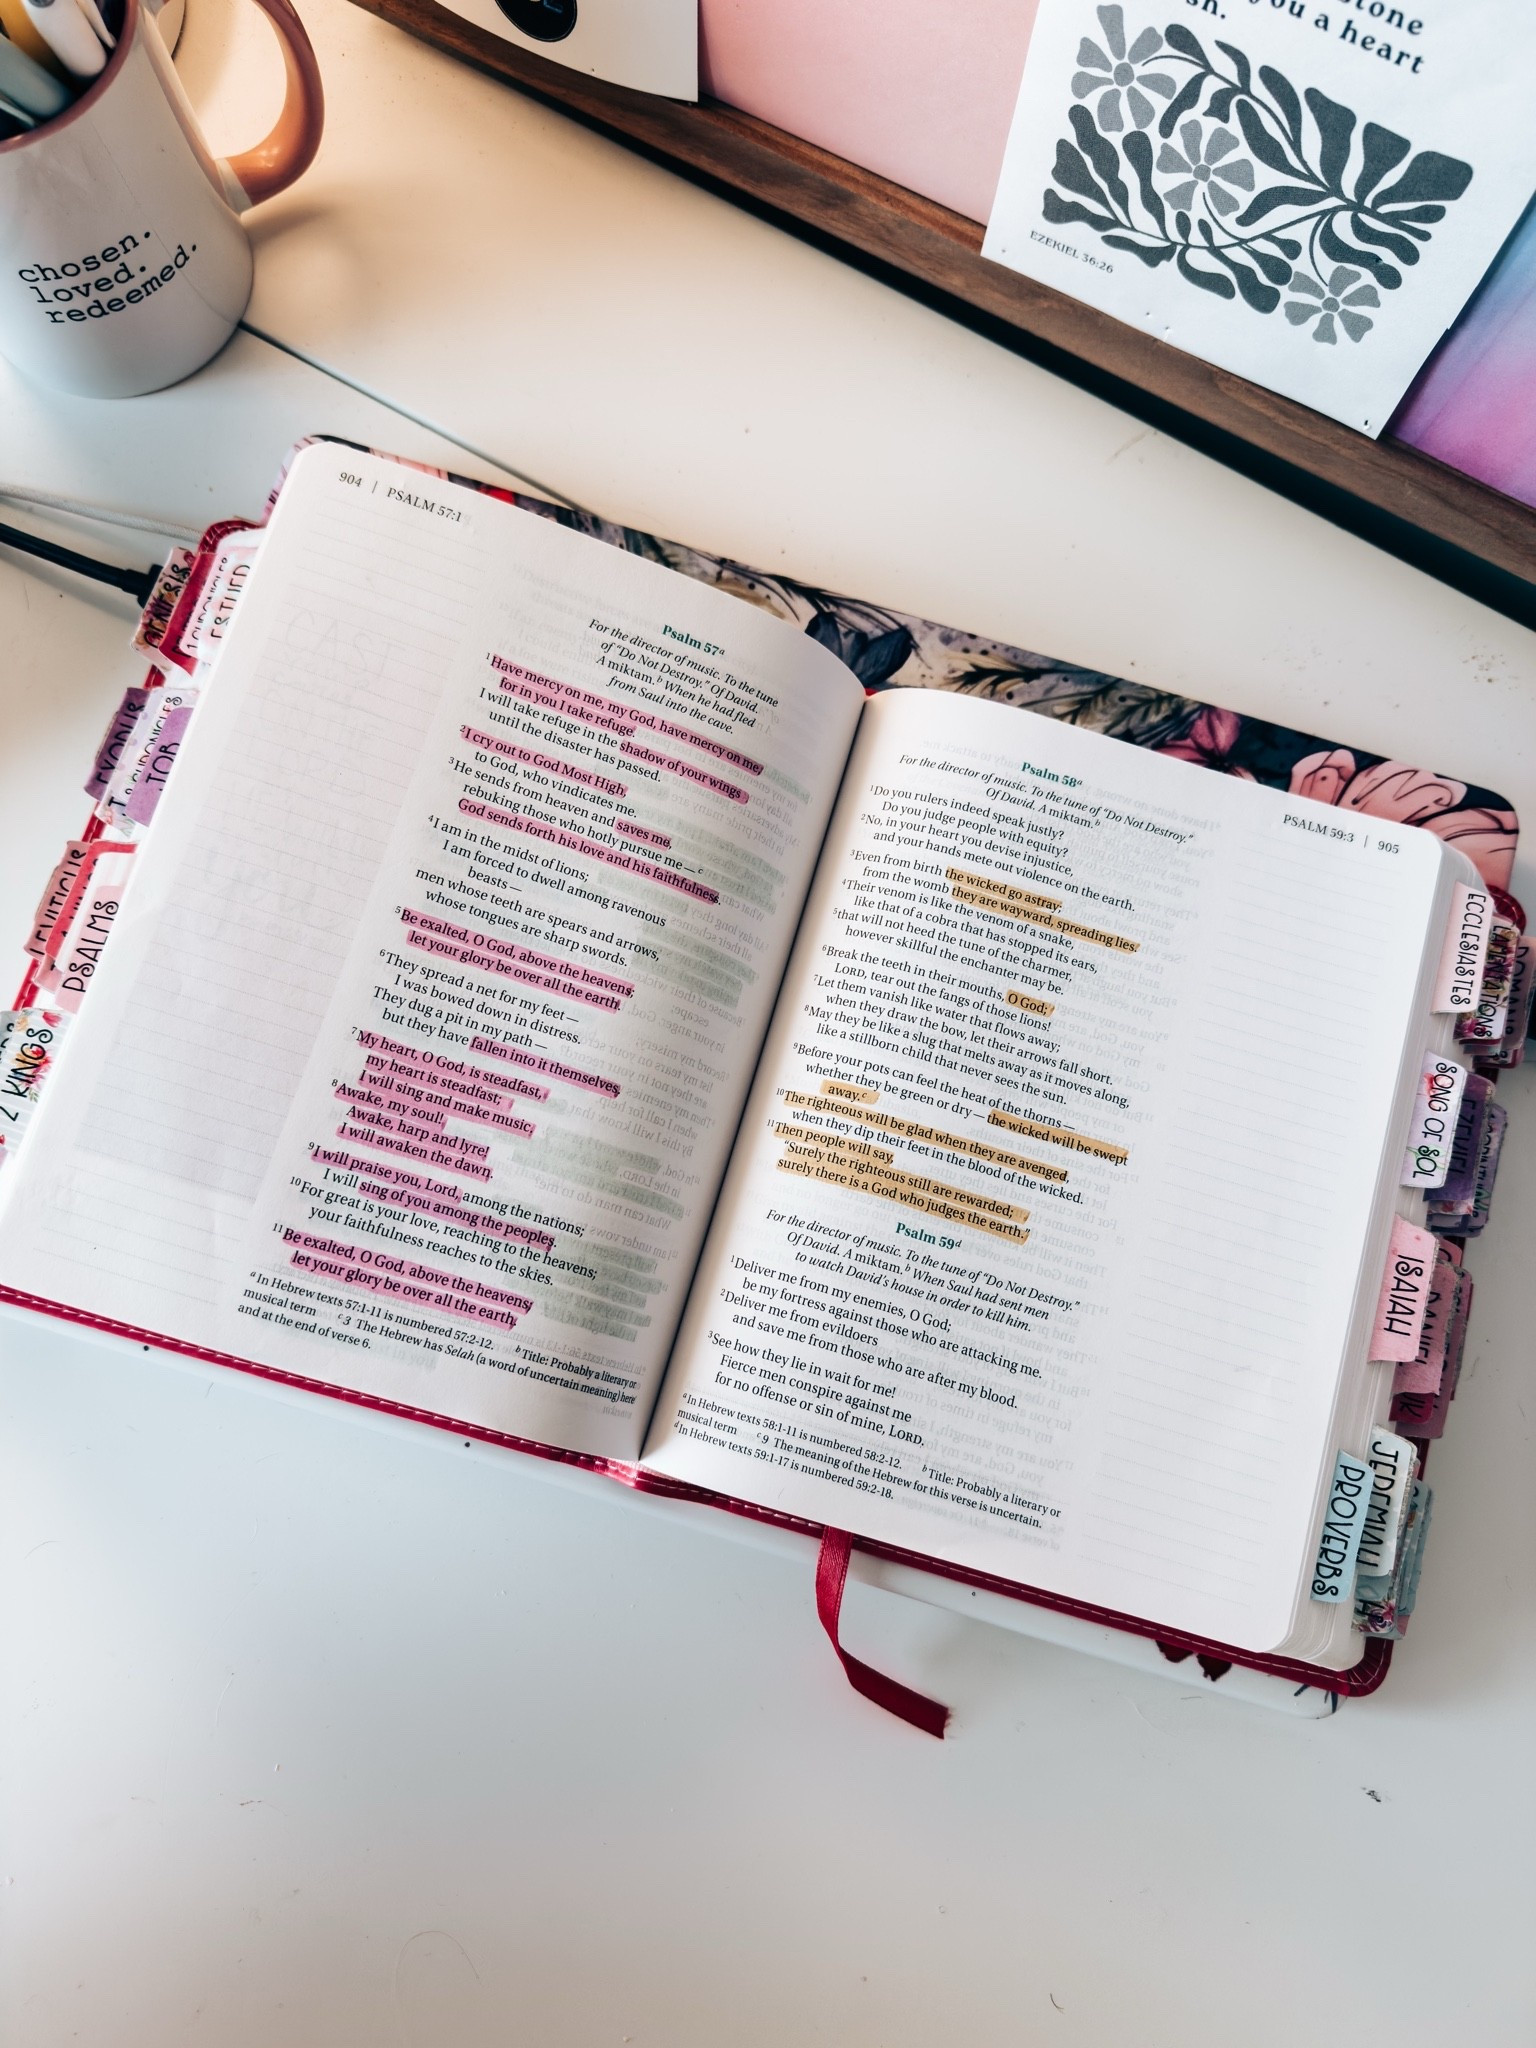 chosen.
loved.
redeemed.
stone
you a heart
EZEKIEL 36:26
904 | PSALM 57:1
Psalm 57a
For the director of music. To the tune
of “Do Not Destroy.” Of David.
A miktam.b When he had fled
from Saul into the cave.
1Have mercy on me, my God, have mercy on me,
for in you I take refuge.
I will take refuge in the shadow of your wings
until the disaster has passed.
2I cry out to God Most High,
to God, who vindicates me.
3He sends from heaven and saves me,
rebuking those who hotly pursue me—c
God sends forth his love and his faithfulness.
4I am in the midst of lions;
I am forced to dwell among ravenous
beasts—
men whose teeth are spears and arrows,
whose tongues are sharp swords.
5Be exalted, O God, above the heavens;
let your glory be over all the earth.
6They spread a net for my feet—
I was bowed down in distress.
They dug a pit in my path—
but they have fallen into it themselves.
7My heart, O God, is steadfast,
my heart is steadfast;
I will sing and make music.
8Awake, my soul!
Awake, harp and lyre!
I will awaken the dawn.
9I will praise you, Lord, among the nations;
I will sing of you among the peoples.
10For great is your love, reaching to the heavens;
your faithfulness reaches to the skies.
11Be exalted, O God, above the heavens;
let your glory be over all the earth.
a In Hebrew texts 57:1-11 is numbered 57:2-12. b Title: Probably a literary or
musical term c 3 The Hebrew has Selah (a word of uncertain meaning) here
and at the end of verse 6.
PSALM 59:3 | 905
Psalm 58a
For the director of music. To the tune of “Do Not Destroy.”
Of David. A miktam.b
1Do you rulers indeed speak justly?
Do you judge people with equity?
2No, in your heart you devise injustice,
and your hands mete out violence on the earth.
3Even from birth the wicked go astray;
from the womb they are wayward, spreading lies.
4Their venom is like the venom of a snake,
like that of a cobra that has stopped its ears,
5that will not heed the tune of the charmer,
however skillful the enchanter may be.
6Break the teeth in their mouths, O God;
LORD, tear out the fangs of those lions!
7Let them vanish like water that flows away;
when they draw the bow, let their arrows fall short.
8May they be like a slug that melts away as it moves along,
like a stillborn child that never sees the sun.
9Before your pots can feel the heat of the thorns—
whether they be green or dry—the wicked will be swept
away.c
10The righteous will be glad when they are avenged,
when they dip their feet in the blood of the wicked.
11Then people will say,
“Surely the righteous still are rewarded;
surely there is a God who judges the earth.”
Psalm 59d
For the director of music. To the tune of “Do Not Destroy.”
Of David. A miktam.b When Saul had sent men
to watch David’s house in order to kill him.
1Deliver me from my enemies, O God;
be my fortress against those who are attacking me.
2Deliver me from evildoers
and save me from those who are after my blood.
3See how they lie in wait for me!
Fierce men conspire against me
for no offense or sin of mine, LORD.
a In Hebrew texts 58:1-11 is numbered 58:2-12. b Title: Probably a literary or
musical term c 9 The meaning of the Hebrew for this verse is uncertain.
d In Hebrew texts 59:1-17 is numbered 59:2-18.
GENESIS
1 CHRONICLES
ESTHER
EXODUS
CHRONICLES
JOB
LEVITICUS
PSALMS
2 KINGS
ECCLESIASTES
LAMENTATIONS
ROMANS
SONG OF SOL
EZEKIEL
ISAIAH
DANIEL
JEREMIAH
PROVERBS